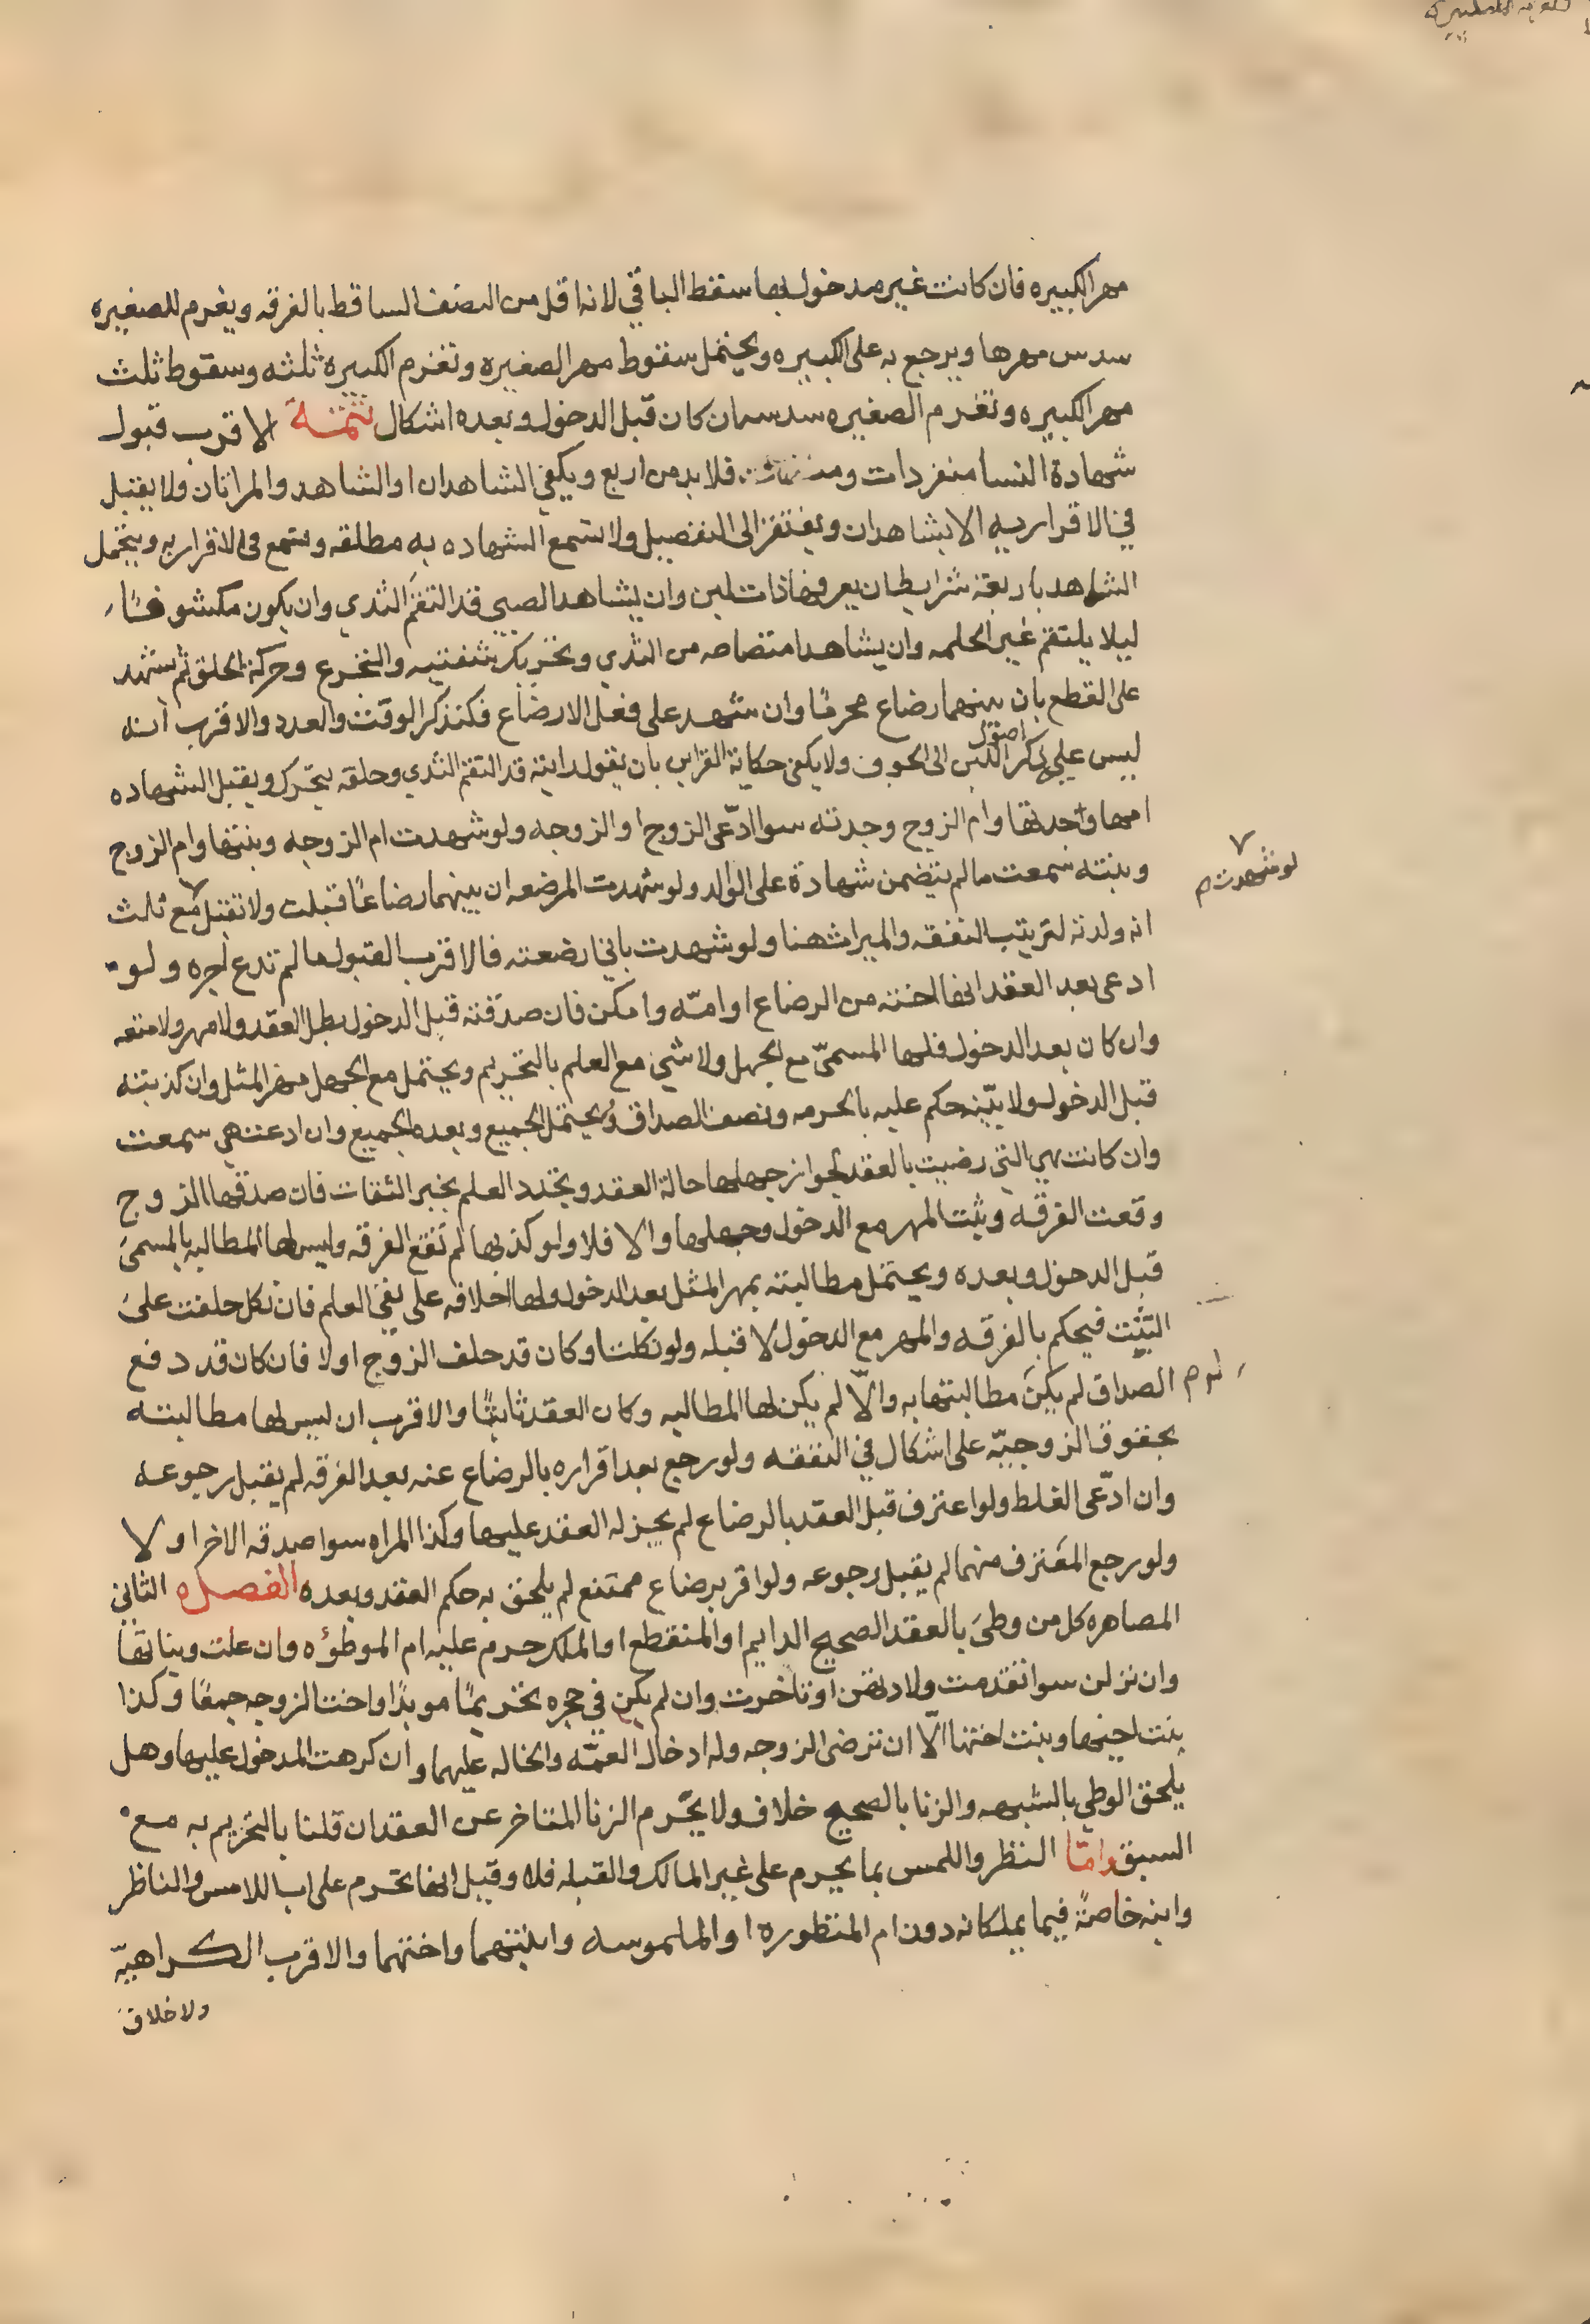 مهر الكبيره فان كانت غير مدخول بها سقط الباقي لانه اقل من النصف الساقط بالفرقه ويغرم للصغيره
سدس مهرها ويرجع به على الكبيره ويحتمل سقوط مهر الصغيره وتغرم الكبيره ثلثه وسقوط ثلث
مهر الكبيره وتغرم الصغيره سدسه ان كان قبل الدخول وبعده اشكال تتمة الاقرب قبول
شهادة النسا منفردات فلا بد من اربع ويكفي الشاهدان او الشاهد والمراتان ولا يقبل
في الاقرار به الا شاهدان ويفتقر الى التفصيل ولا تسمع الشهاده به مطلقه وتسمع في الاقرار به ويتحمل
الشاهد باربعة شرايط ان يعرفها ذات لبن وان يشاهد الصبي قد التقم الثدي وان يكون مكشوفًا
ليلا يلتقم غير الحلمه وان يشاهد امتصاصه من الثدي وتحريك شفتيه والتجرع وحركة الحلق ثم يشهد
على القطع بان بينهما رضاع محرمًا وان يشهد على فعل الارضاع فكتذكر الوقت والعدد والاقرب انه
ليس عليه ذكر وصول اللبن الى الجوف ولا يكفي حكاية القراين بان يقول رايته قد التقم الثدي وحلقه يتحرك ويقبل الشهاده
امها وجدتها وام الزوج وجدته سوا ادّعى الزوج او الزوجه ولو شهدت ام الزوجه وبنتها وام الزوج
وبنته سمعت ما لم يتضمن شهادة على الوالد ولو شهدت المرضعه ان بينهما رضاعًا قبلت ولا تقبل مع ثلث
لو شهدت م
انه ولدته لترتيب النفقه والميراث هنا ولو شهدت باني ارضعته فالاقرب القبول ما لم تدع اجره ولو
ادعى بعد العقد انها اخته من الرضاع او امّه وامكن فان صدقته قبل الدخول بطل العقد ولا مهر ولا متعه
وان كان بعد الدخول فلها المسمّى مع الجهل ولا شي مع العلم بالتحريم ويحتمل مع الجهل مهر المثل وان كذبته
قبل الدخول ولا بيّنه حكم عليه بالحرمه ونصف الصداق ويحتمل الجميع وبعده الجميع وان ادعت هي سمعت
وان كانت هي التي رضيت بالعقد لجواز جهلها حالة العقد وتجدد العلم بخبر الثقات فان صدقها الزوج
وقعت الفرقه وثبت المهر مع الدخول وجهلها والا فلا ولو كذبها لم تقع الفرقه وليس لها المطالبه بالمسمى
قبل الدخول وبعده ويحتمل مطالبته بمهر المثل بعد الدخول ولها احلافه على نفي العلم فان نكل حلفت على
البتّ فيحكم بالفرقه والمهر مع الدخول لا قبله ولو نكلت او كان قد حلف الزوج اولا فان كان قد دفع
الصداق لم يكن مطالبتها به والّا لم يكن لها المطالبه وكان العقد ثابتًا والاقرب ان ليس لها مطالبته
بحقوق الزوجيّه على اشكال في النفقه ولو رجع بعد اقراره بالرضاع عنه بعد الفرقه لم يقبل رجوعه
وان ادّعى الغلط ولو اعترف قبل العقد بالرضاع لم يجز له العقد عليها وكذا المراه سوا صدقه الاخر او لا
ولو رجع المعترف منهما لم يقبل رجوعه ولو اقر برضاع ممتنع لم يلحق به حكم العقد وبعده الفصل الثاني
المصاهره كل من وطئ بالعقد الصحيح الدايم او المنقطع او الملك حرم عليه ام الموطؤه وان علت وبناتها
وان نزلن سوا تقدمت ولادتهن او تاخرت وان لم يكن في حجره تحريمًا موبدًا واخت الزوجه جمعًا وكذا
بنت اخيها وبنت اختها الّا ان ترضى الزوجه وله ادخال العمّه والخاله عليهما وان كرهت المدخول عليها وهل
يلحق الوطي بالشبهه والزنا بالصحيح خلاف ولا يحرم الزنا المتاخر عن العقد ان قلنا بالتحريم به مع
السبق وامّا النظر واللمس بما يحرم على غير المالك والقبله فلا وقيل انها تحرم على اب اللامس والناظر
وابنه خاصةً فيما يملكانه دون ام المنظوره او الملموسه وابنتهما واختهما والاقرب الكراهيّه
ولا خلاف